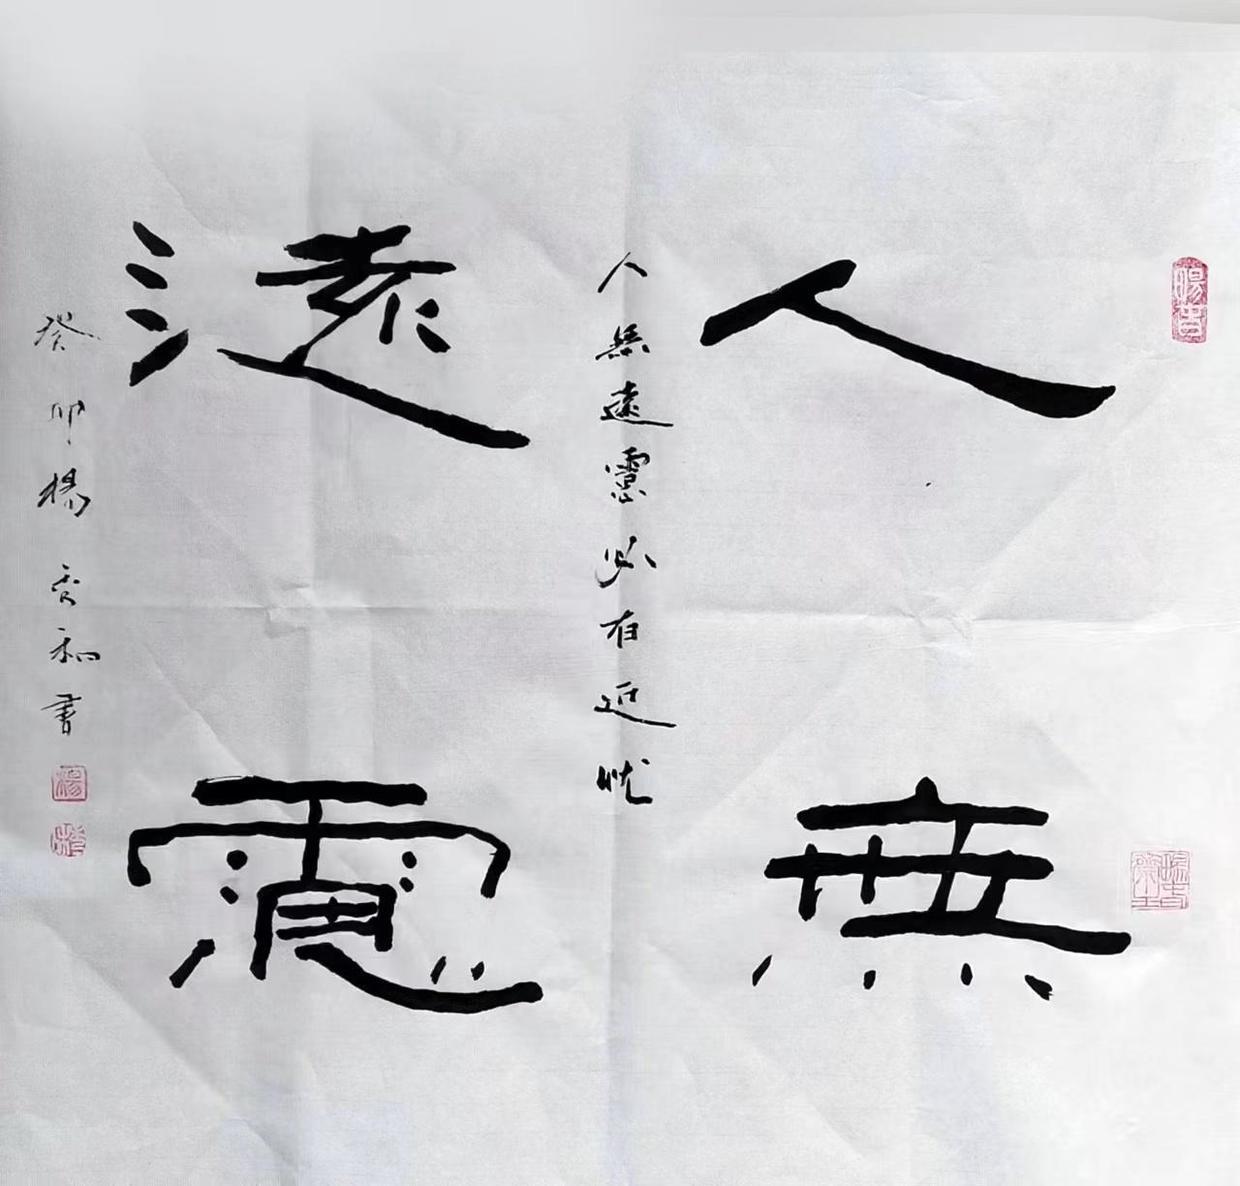 人無
人無遠慮必有近忧
遠慮
癸卯楊和書
楊